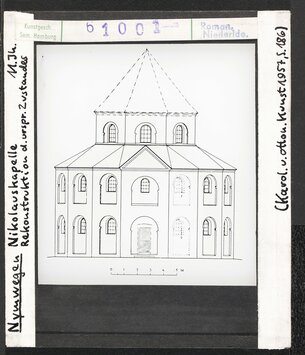 Kunstgesch.
Sem. Hamburg
b 1001
Roman.
Niederlde.
Nymwegen Nikolauskapelle 11. Jh.
Rekonstruktion d. urspr. Zustandes
(Karol. u. Otton. Kunst 1957, S. 186)
0 1 2 3 4 5 M